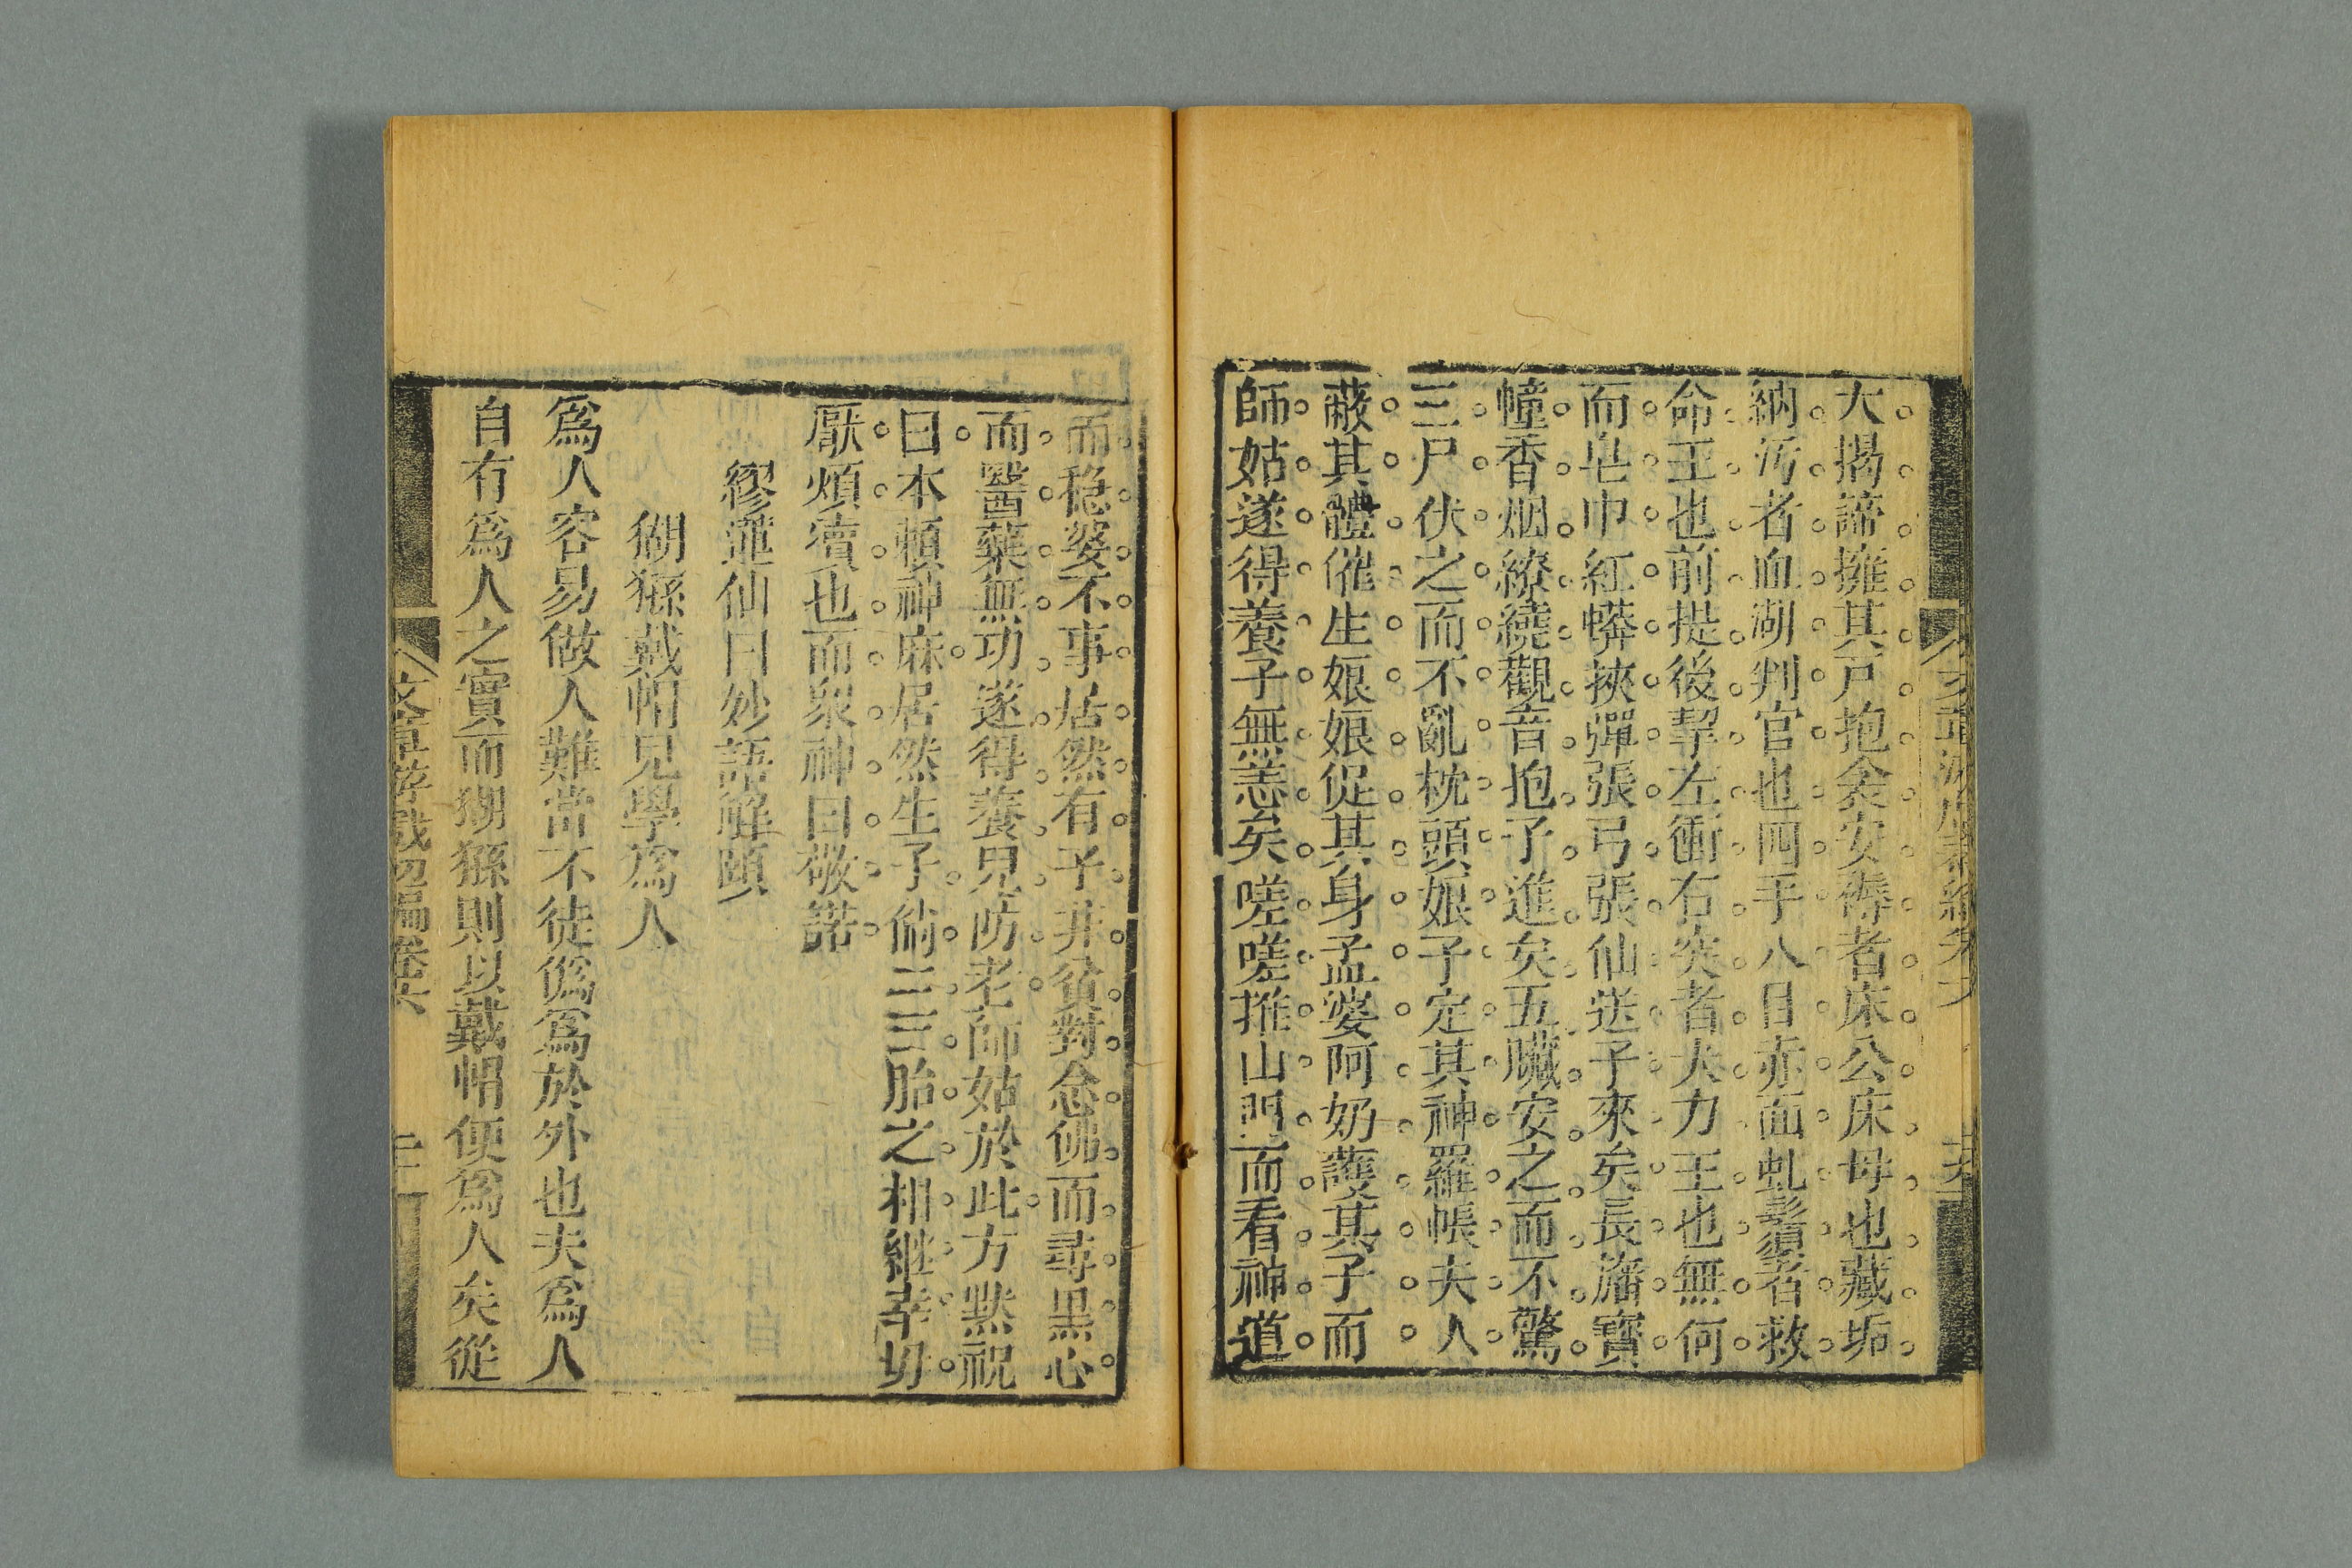 大揭諦擁其戸抱衾安蓐者床公床母也藏垢
納污者血湖判官也四手八目赤面虬鬚者救
命王也前提後挈左衝右突者大力王也無何
而皂巾紅蟒挾彈張弓張仙送子來矣長旛寳
幢香烟繚繞觀音抱子進矣五臟安之而不驚
三尸伏之而不亂枕頭娘子定其神羅帳夫人
蔽其體催生娘娘促其身孟婆阿奶護其子而
師姑遂得養子無恙矣嗟嗟推山門而看神道
而稳婆不事居然有子井贫對念佛而尋黒心
而醫藥無功遂得養兒防老師姑於此方黙祝
曰本頓神庥居然生子倘二三胎之相継幸切
厭煩瀆也而衆神曰敬諾
繆蓮仙曰妙語解頤
猢猻戴帽兒學爲人
爲人容易做人難當不徒僞爲於外也夫爲人
自有爲人之實而猢猻則以戴帽便爲人矣從
文章游戲初編卷六